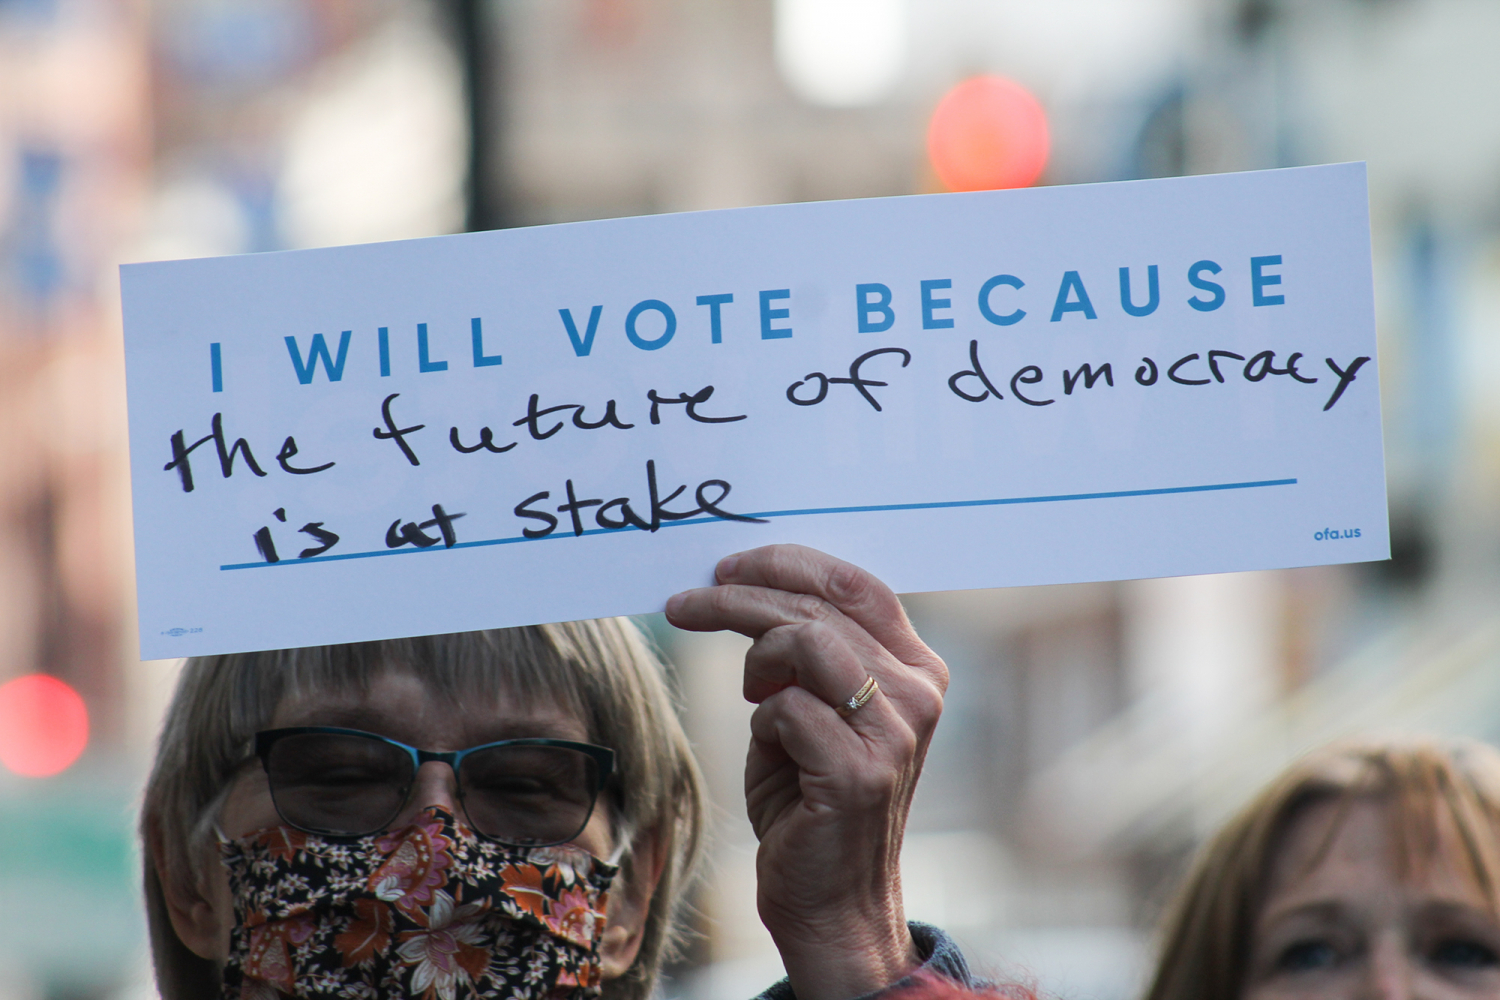 I WILL VOTE BECAUSE
the future of democracy
is at stake
ofa.us